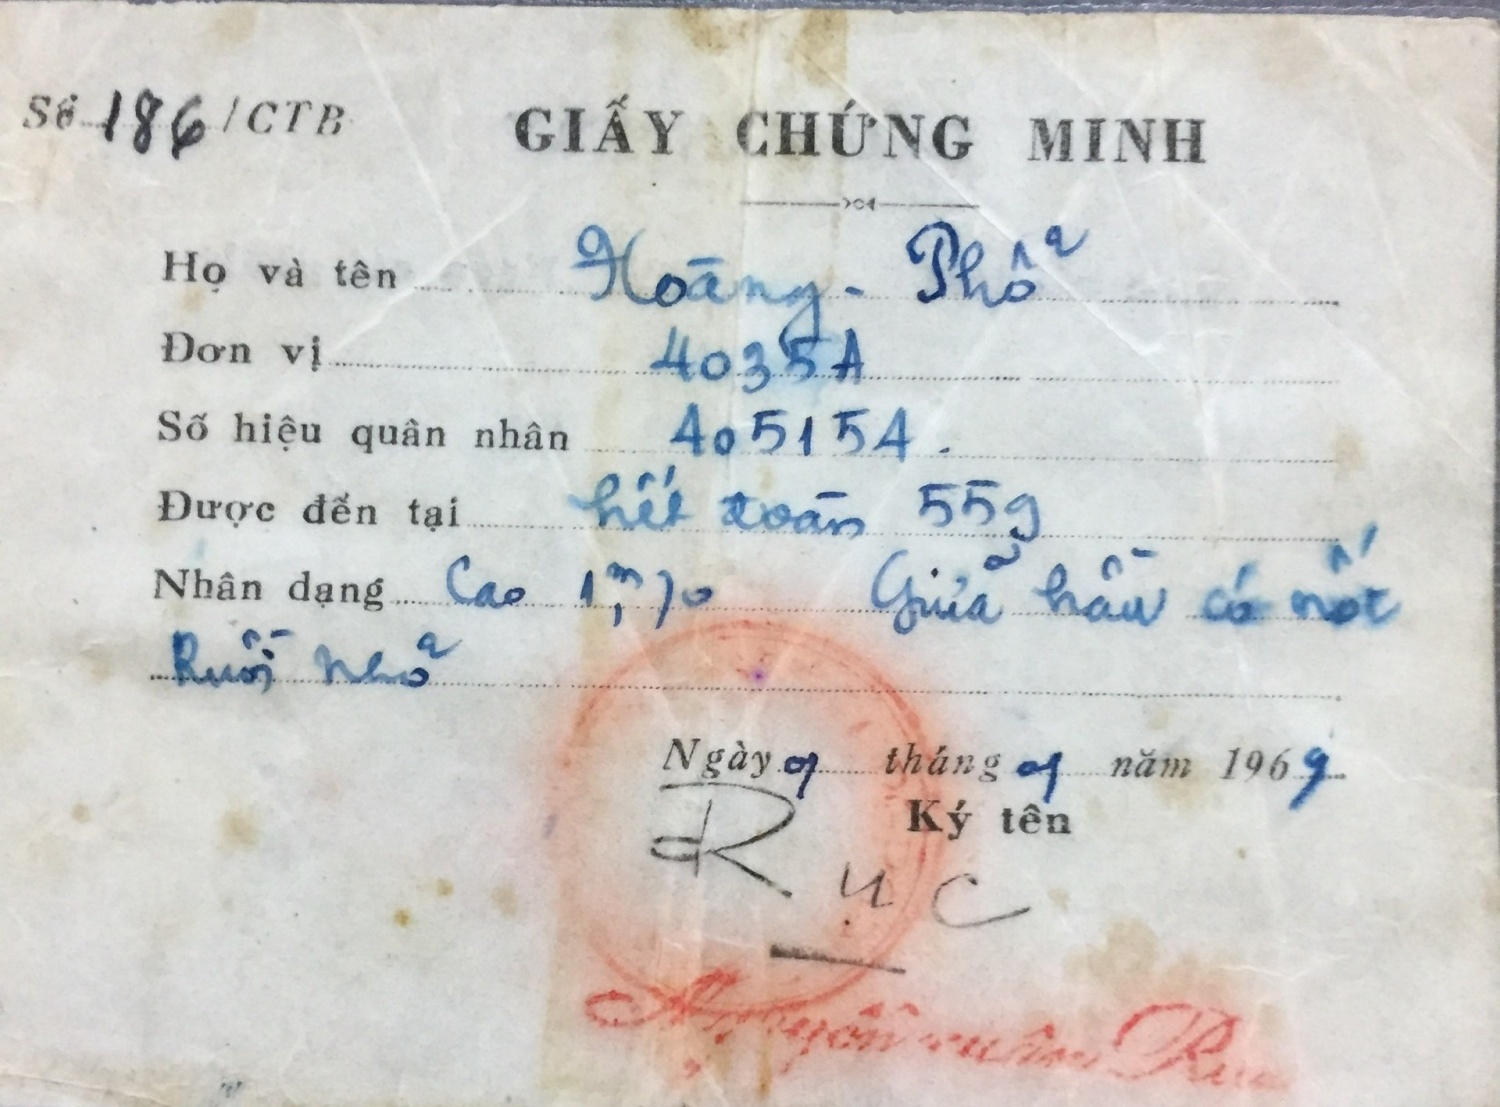 Số 186 / CTB
GIẤY CHỨNG MINH
Họ và tên Hoàng - Phổ
Đơn vị 4035A
Số hiệu quân nhân 405154.
Được đến tại hết đoàn 559
Nhân dạng Cao 1m,70 Giữa hầu có nốt
Ruồi nhỏ
Ngày 01 tháng 01 năm 1969
Ký tên
Rục
Nguyễn xuân